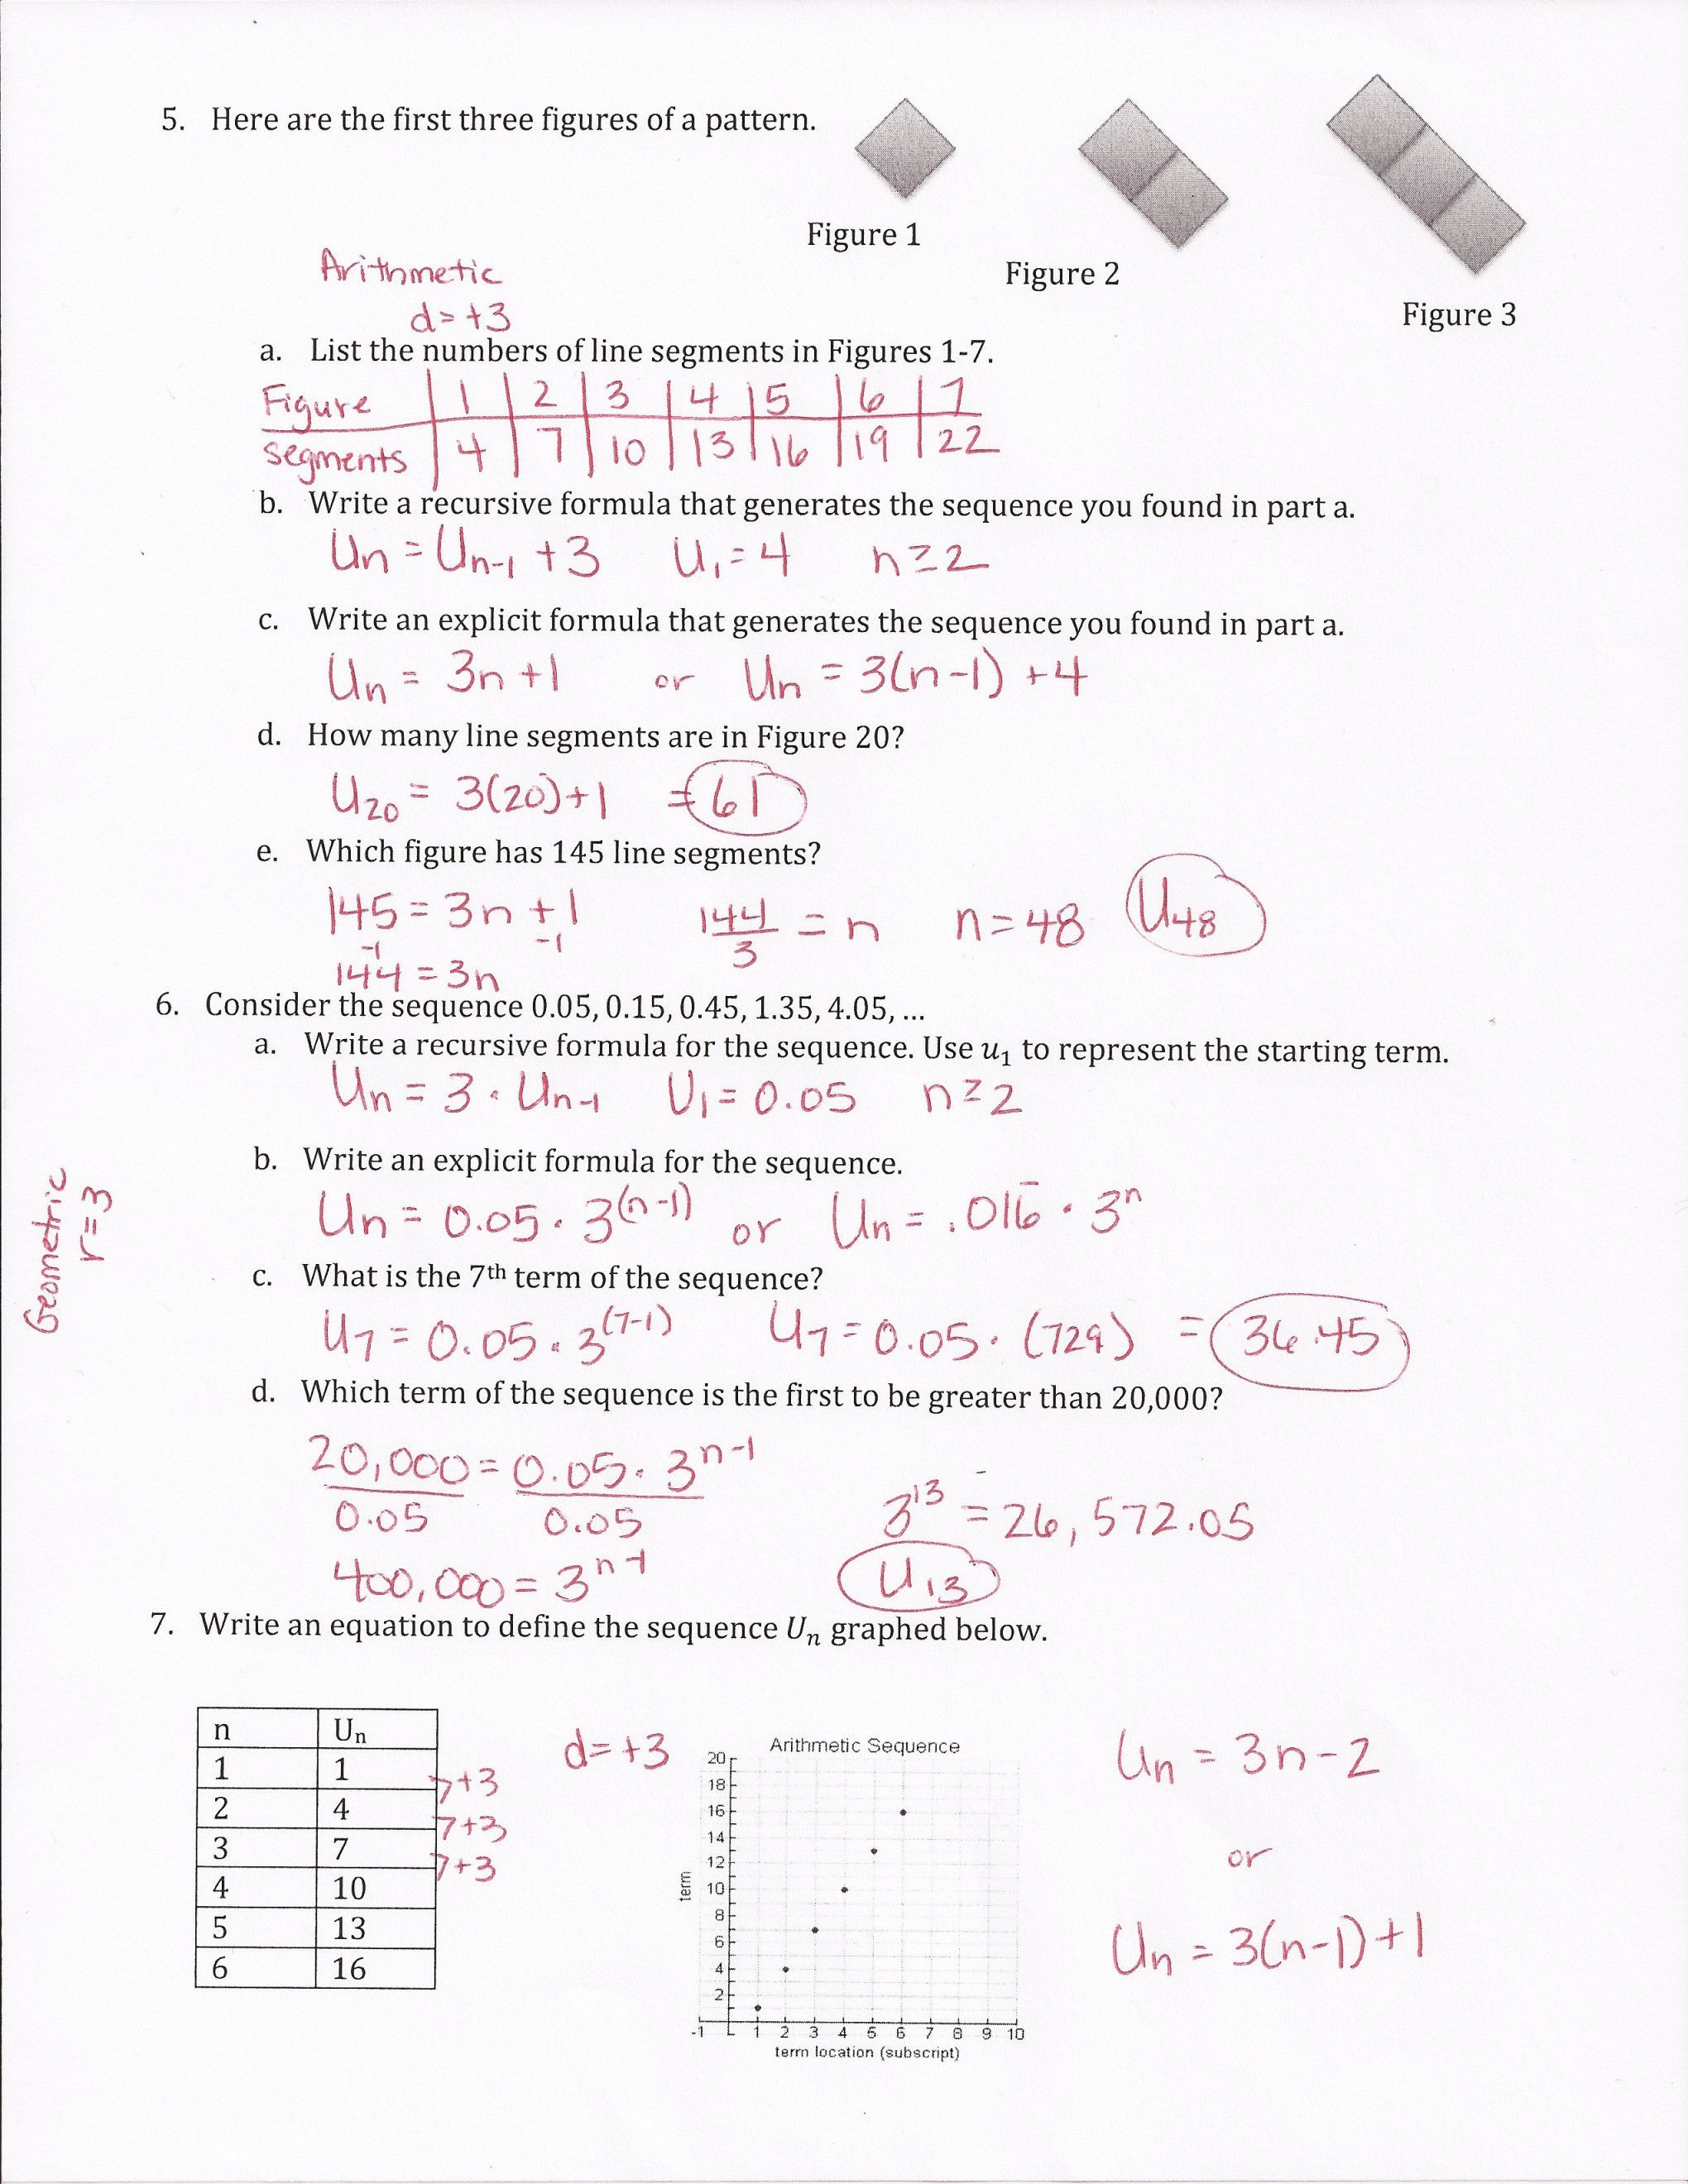 5. Here are the first three figures of a pattern.
Figure 1
Figure 2
Figure 3
Arithmetic
d= +3
a. List the numbers of line segments in Figures 1-7.
Figure | 1 | 2 | 3 | 4 | 5 | 6 | 7
segments | 4 | 7 | 10 | 13 | 16 | 19 | 22
b. Write a recursive formula that generates the sequence you found in part a.
Un = Un-1 +3 U1=4 n≥2
c. Write an explicit formula that generates the sequence you found in part a.
Un = 3n+1 or Un = 3(n-1) +4
d. How many line segments are in Figure 20?
U20 = 3(20)+1 = 61
e. Which figure has 145 line segments?
145 = 3n +1 144/3 = n n=48 U48
-1 -1
144 = 3n
6. Consider the sequence 0.05, 0.15, 0.45, 1.35, 4.05, ...
a. Write a recursive formula for the sequence. Use u1 to represent the starting term.
Un = 3 · Un-1 U1 = 0.05 n≥2
Geometric
r=3
b. Write an explicit formula for the sequence.
Un = 0.05 · 3^(n-1) or Un = .016̄ · 3^n
c. What is the 7th term of the sequence?
U7 = 0.05 · 3^(7-1) U7 = 0.05 · (729) = 36.45
d. Which term of the sequence is the first to be greater than 20,000?
20,000 = 0.05 · 3^n-1
0.05 0.05
3^13 = 26,572.05
400,000 = 3^n-1
U13
7. Write an equation to define the sequence Un graphed below.
n Un
1 1
2 4
3 7
4 10
5 13
6 16
7+3
7+3
7+3
d= +3
Arithmetic Sequence
20
18
16
14
12
10
8
6
4
2
term
-1 1 2 3 4 5 6 7 8 9 10
term location (subscript)
Un = 3n-2
or
Un = 3(n-1)+1